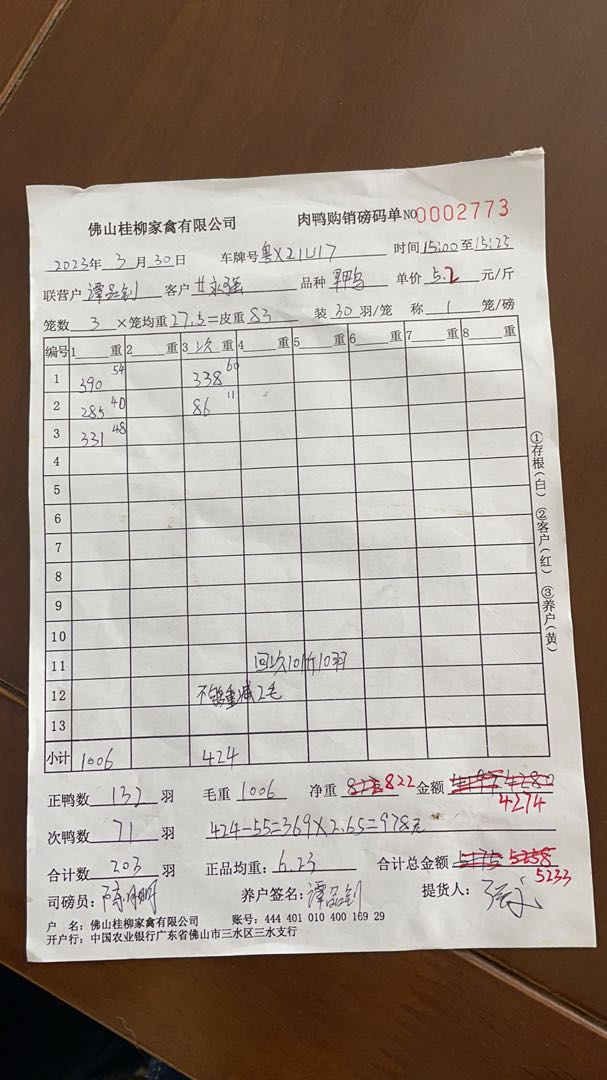 佛山桂柳家禽有限公司 肉鸭购销磅码单 NO 0002773
2023年3月30日 车牌号粤X21U17 时间15:00至15:25
联营户 谭品钊 客户 永强 品种 单价 5.2 元/斤
笼数 3 ×笼均重27.5=皮重 83 装 30 羽/笼 称 1 笼/磅
编号 1 重 2 重 3 次 重 4 重 5 重 6 重 7 重 8 重
1 390 54 338 60
2 285 40 86 11
3 331 48
4
5
6
7
8
9
10
11 回次10斤10羽
12 不够重减2毛
13
小计 1006 424
正鸭数 132 羽 毛重 1006 净重 822 金额 4280
4274
次鸭数 71 羽 424-55=369×2.65=978元
合计数 203 羽 正品均重: 6.23 合计总金额 5175 5258
5233
司磅员: 养户签名: 谭品钊 提货人:
户 名: 佛山桂柳家禽有限公司 账号: 444 401 010 400 169 29
开户行: 中国农业银行广东省佛山市三水区三水支行
①存根(白) ②客户(红) ③养户(黄)